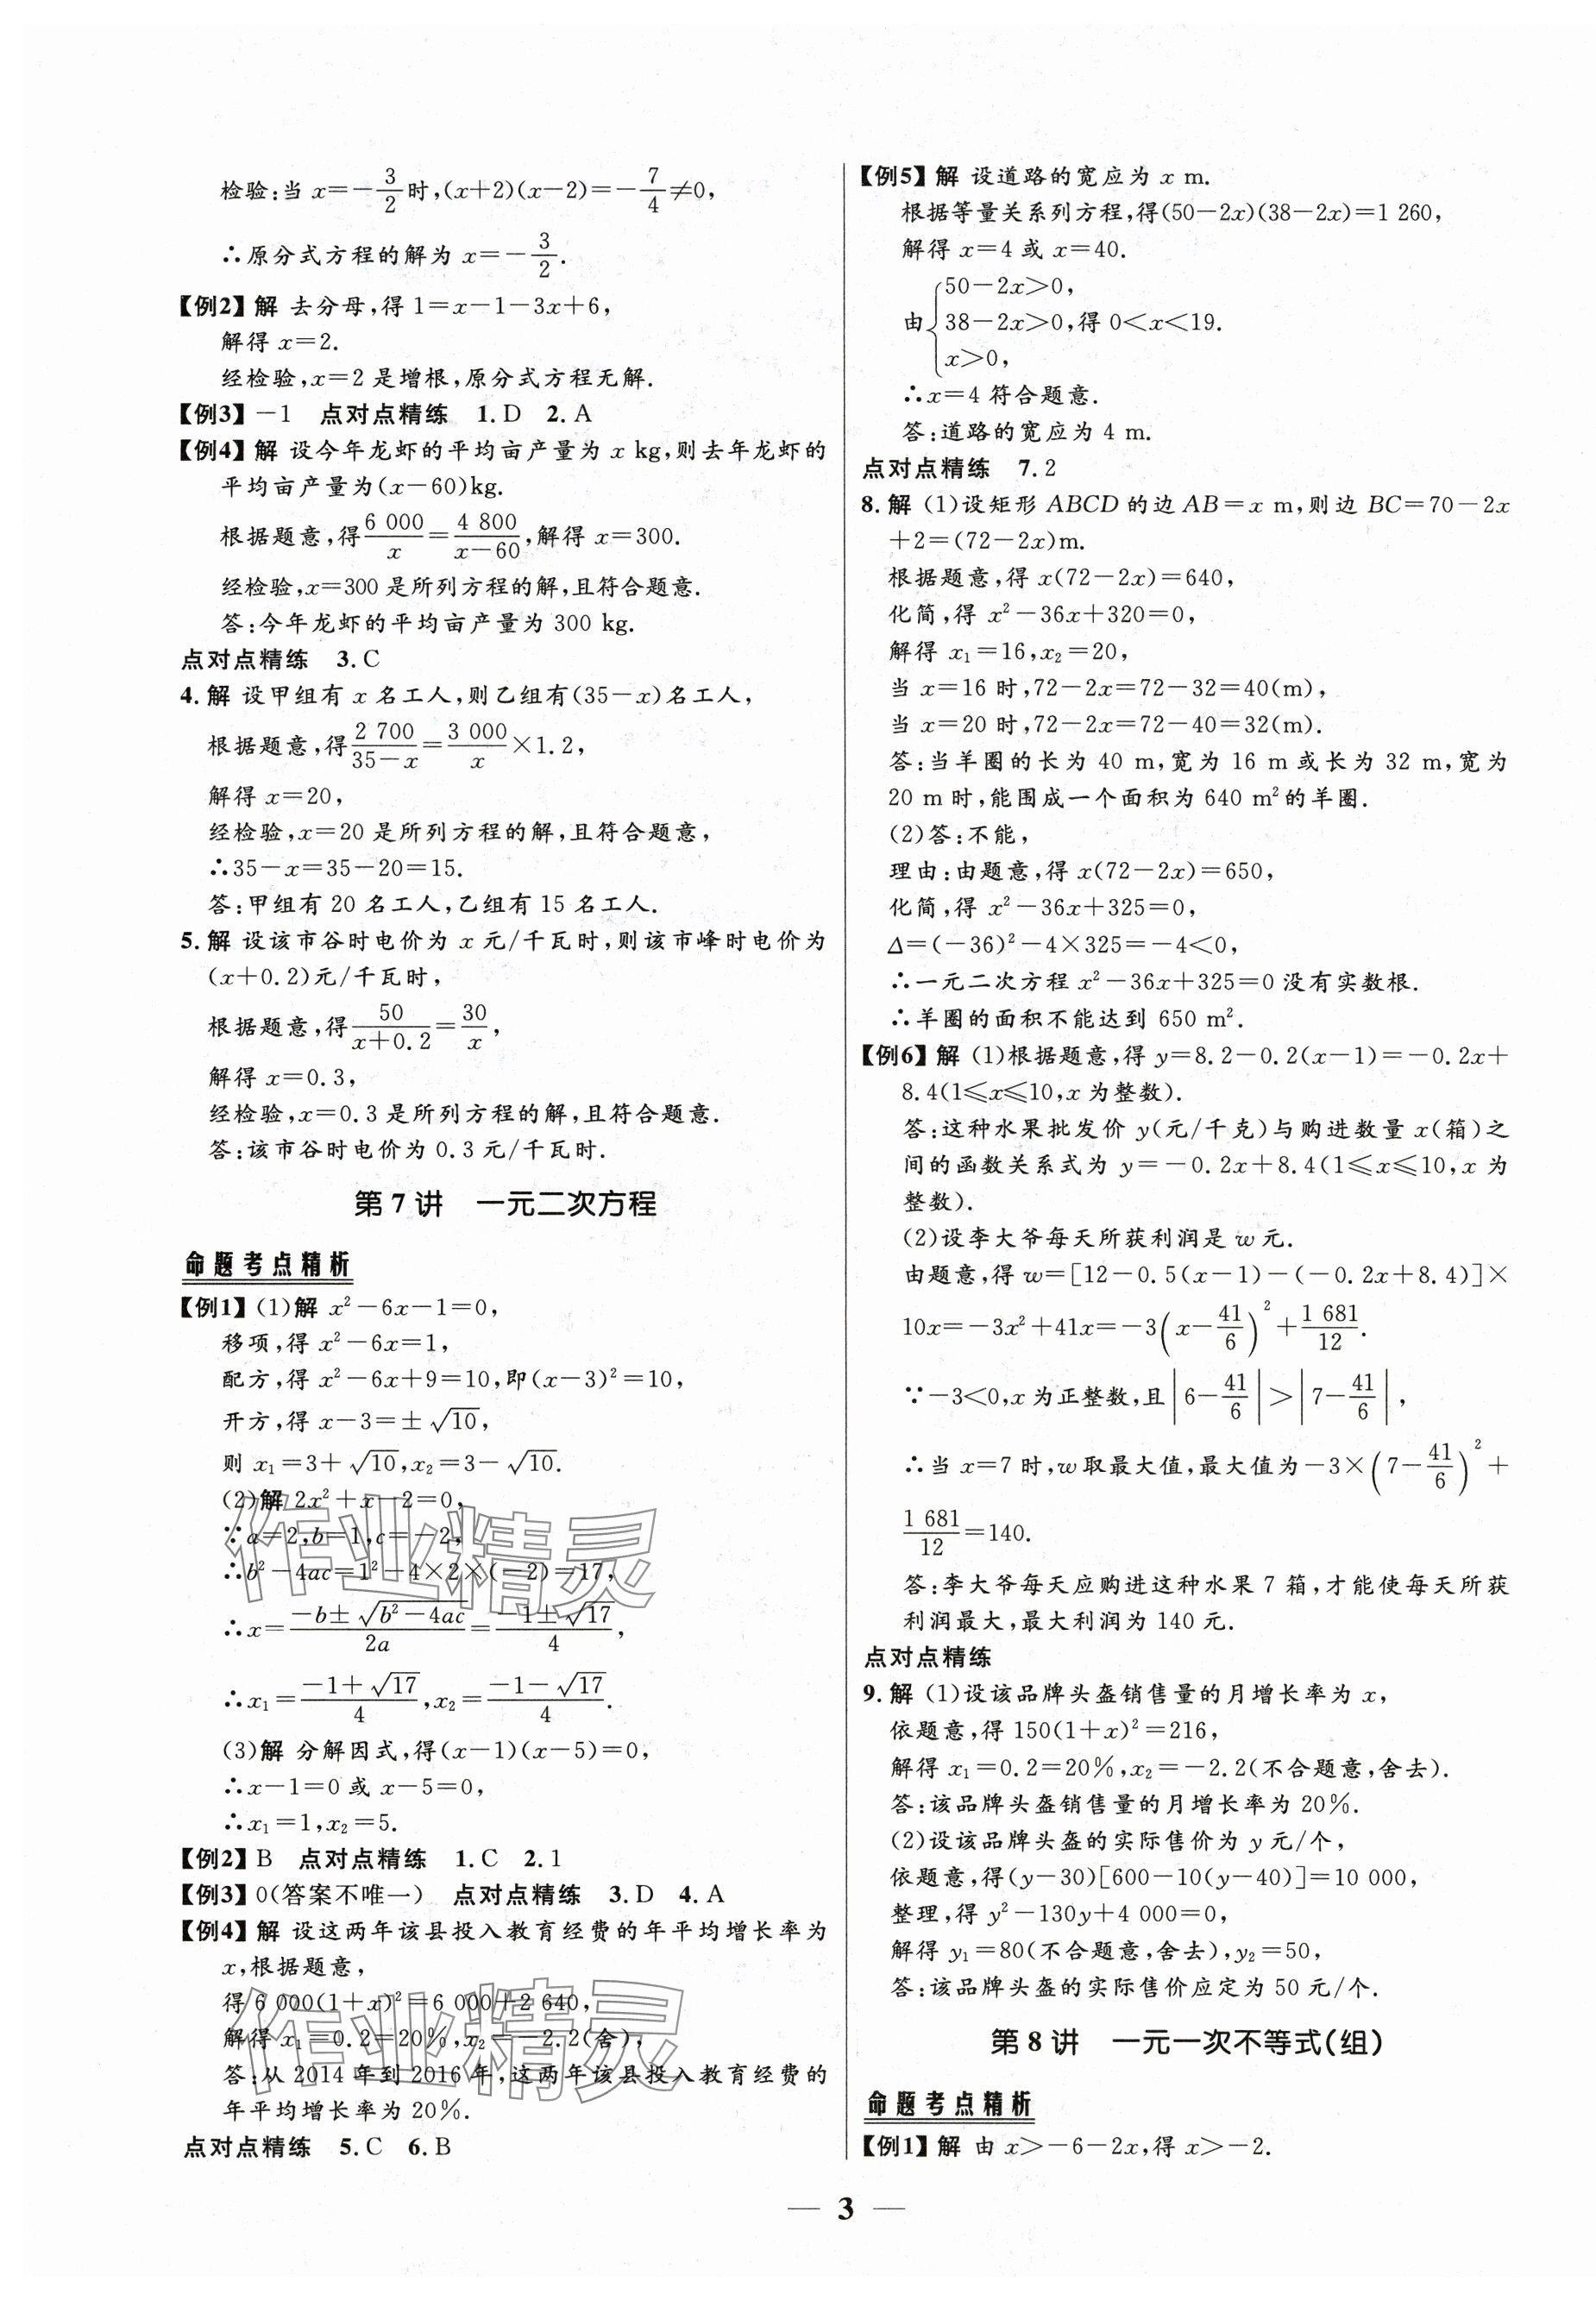 检验:当 x=-3/2时,(x+2)(x-2)=-7/4≠0,
∴原分式方程的解为 x=-3/2.
【例2】解 去分母,得 1=x-1-3x+6,
解得 x=2.
经检验,x=2 是增根,原分式方程无解.
【例3】-1 点对点精练 1.D 2.A
【例4】解 设今年龙虾的平均亩产量为 x kg,则去年龙虾的
平均亩产量为(x-60)kg.
根据题意,得6 000/x=4 800/(x-60),解得 x=300.
经检验,x=300 是所列方程的解,且符合题意.
答:今年龙虾的平均亩产量为 300 kg.
点对点精练 3.C
4.解 设甲组有 x 名工人,则乙组有(35-x)名工人,
根据题意,得2 700/(35-x)=3 000/x×1.2,
解得 x=20,
经检验,x=20 是所列方程的解,且符合题意,
∴35-x=35-20=15.
答:甲组有 20 名工人,乙组有 15 名工人.
5.解 设该市谷时电价为 x 元/千瓦时,则该市峰时电价为
(x+0.2)元/千瓦时,
根据题意,得50/(x+0.2)=30/x,
解得 x=0.3,
经检验,x=0.3 是所列方程的解,且符合题意.
答:该市谷时电价为 0.3 元/千瓦时.
第 7 讲 一元二次方程
命题考点精析
【例1】(1)解 x²-6x-1=0,
移项,得 x²-6x=1,
配方,得 x²-6x+9=10,即(x-3)²=10,
开方,得 x-3=±√10,
则 x₁=3+√10,x₂=3-√10.
(2)解 2x²+x-2=0,
∵a=2,b=1,c=-2,
∴b²-4ac=1²-4×2×(-2)=17,
∴x=(-b±√(b²-4ac))/2a=(-1±√17)/4,
∴x₁=(-1+√17)/4,x₂=(-1-√17)/4.
(3)解 分解因式,得(x-1)(x-5)=0,
∴x-1=0 或 x-5=0,
∴x₁=1,x₂=5.
【例2】B 点对点精练 1.C 2.1
【例3】0(答案不唯一) 点对点精练 3.D 4.A
【例4】解 设这两年该县投入教育经费的年平均增长率为
x,根据题意,
得 6 000(1+x)²=6 000+2 640,
解得 x₁=0.2=20%,x₂=-2.2(舍),
答:从 2014 年到 2016 年,这两年该县投入教育经费的
年平均增长率为 20%.
点对点精练 5.C 6.B
【例5】解 设道路的宽应为 x m.
根据等量关系列方程,得(50-2x)(38-2x)=1 260,
解得 x=4 或 x=40.
50-2x>0,
由{38-2x>0,得 0<x<19.
x>0,
∴x=4 符合题意.
答:道路的宽应为 4 m.
点对点精练 7.2
8.解 (1)设矩形 ABCD 的边 AB=x m,则边 BC=70-2x
+2=(72-2x)m.
根据题意,得 x(72-2x)=640,
化简,得 x²-36x+320=0,
解得 x₁=16,x₂=20,
当 x=16 时,72-2x=72-32=40(m),
当 x=20 时,72-2x=72-40=32(m).
答:当羊圈的长为 40 m,宽为 16 m 或长为 32 m,宽为
20 m 时,能围成一个面积为 640 m²的羊圈.
(2)答:不能,
理由:由题意,得 x(72-2x)=650,
化简,得 x²-36x+325=0,
Δ=(-36)²-4×325=-4<0,
∴一元二次方程 x²-36x+325=0 没有实数根.
∴羊圈的面积不能达到 650 m².
【例6】解 (1)根据题意,得 y=8.2-0.2(x-1)=-0.2x+
8.4(1≤x≤10,x 为整数).
答:这种水果批发价 y(元/千克)与购进数量 x(箱)之
间的函数关系式为 y=-0.2x+8.4(1≤x≤10,x 为
整数).
(2)设李大爷每天所获利润是 w 元.
由题意,得 w=[12-0.5(x-1)-(-0.2x+8.4)]×
10x=-3x²+41x=-3(x-41/6)²+1 681/12.
∵-3<0,x 为正整数,且|6-41/6|>|7-41/6|,
∴当 x=7 时,w 取最大值,最大值为-3×(7-41/6)²+
1 681/12=140.
答:李大爷每天应购进这种水果 7 箱,才能使每天所获
利润最大,最大利润为 140 元.
点对点精练
9.解 (1)设该品牌头盔销售量的月增长率为 x,
依题意,得 150(1+x)²=216,
解得 x₁=0.2=20%,x₂=-2.2(不合题意,舍去).
答:该品牌头盔销售量的月增长率为 20%.
(2)设该品牌头盔的实际售价为 y 元/个,
依题意,得(y-30)[600-10(y-40)]=10 000,
整理,得 y²-130y+4 000=0,
解得 y₁=80(不合题意,舍去),y₂=50,
答:该品牌头盔的实际售价应定为 50 元/个.
第 8 讲 一元一次不等式(组)
命题考点精析
【例1】解 由 x>-6-2x,得 x>-2.
— 3 —
作业精灵
作业精灵